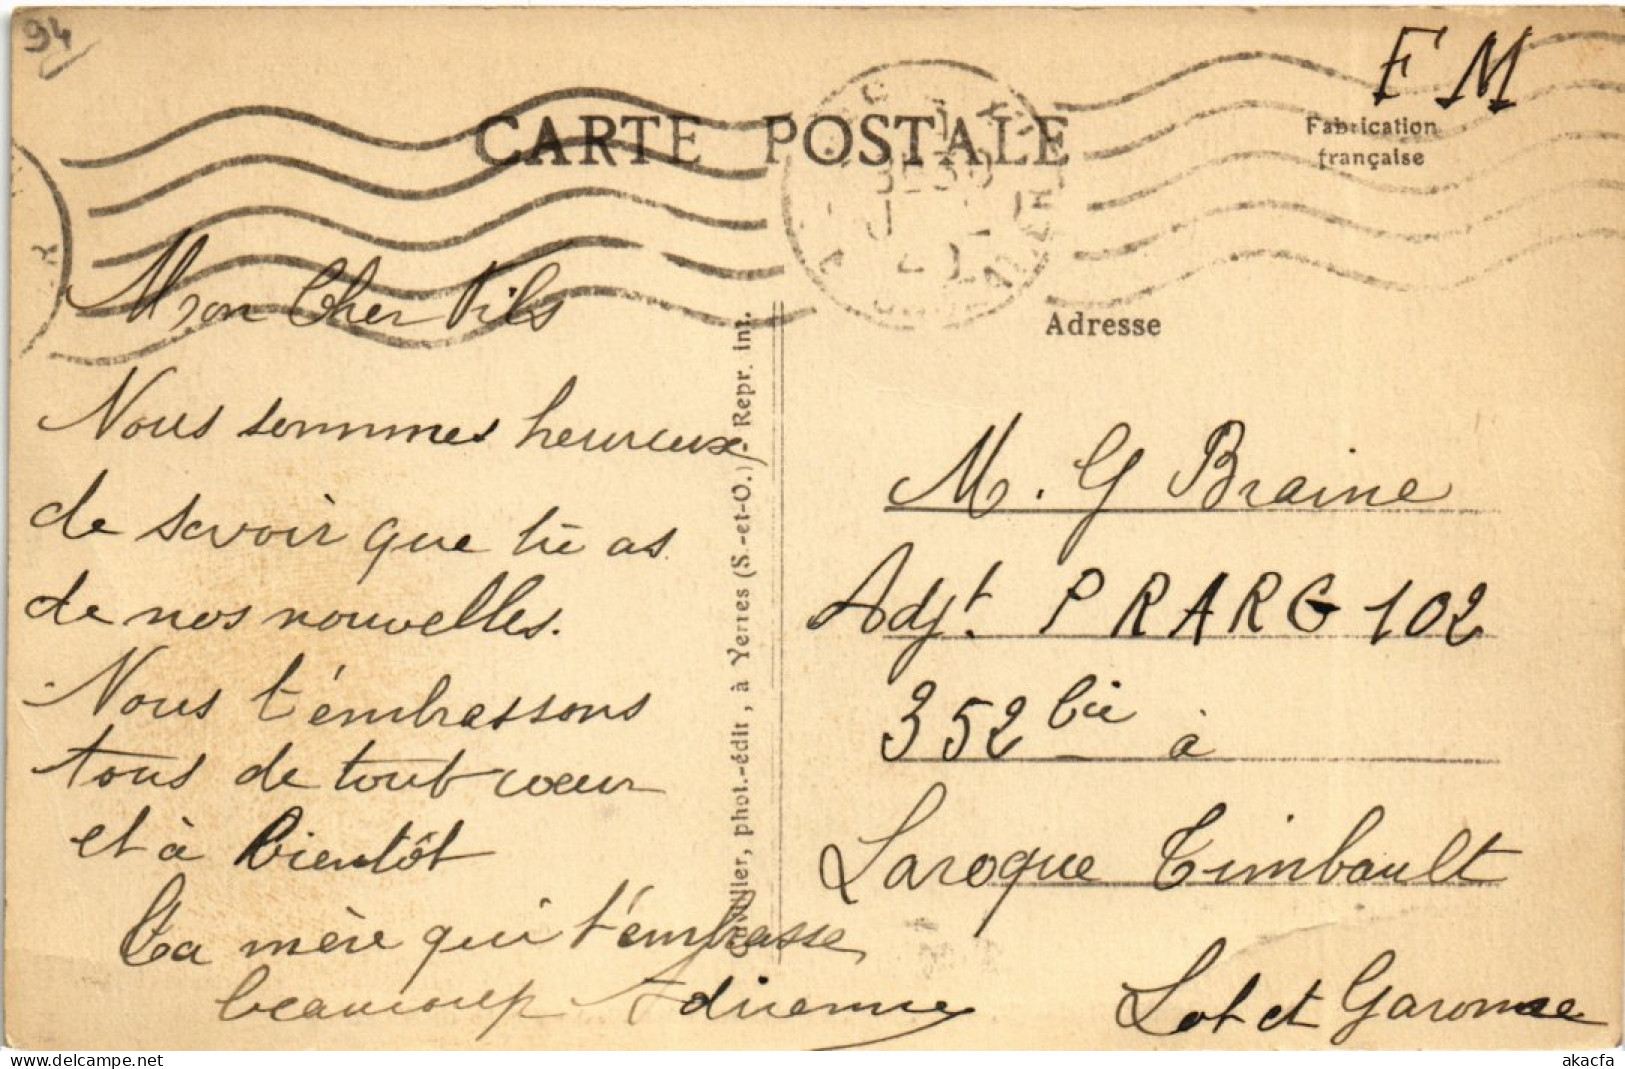 94
F M
CARTE POSTALE
Fabrication
française
Adresse
Mon Cher Fils
Nous sommes heureux
de savoir que tu as
de nos nouvelles.
Nous t'embrassons
tous de tout cœur
et à bientôt
Ta mère qui t'embrasse
beaucoup Adrienne
phot.-édit, à Yerres (S.-et-O.) - Repr. int.
M. G Braine
Adjt. P R A R G 102
352 bis à
Laroque Timbault
Lot et Garonne
akacfa